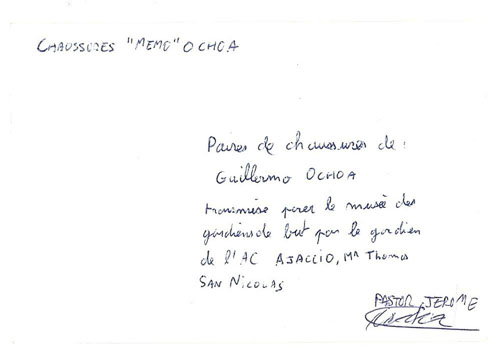 CHAUSSURES "MEMO" OCHOA
Paires de chaussures de :
Guillermo OCHOA
transmise pour le musée des
gardiens de but par le gardien
de l'AC AJACCIO, Mr Thomas
SAN NICOLAS
PASTOR JEROME